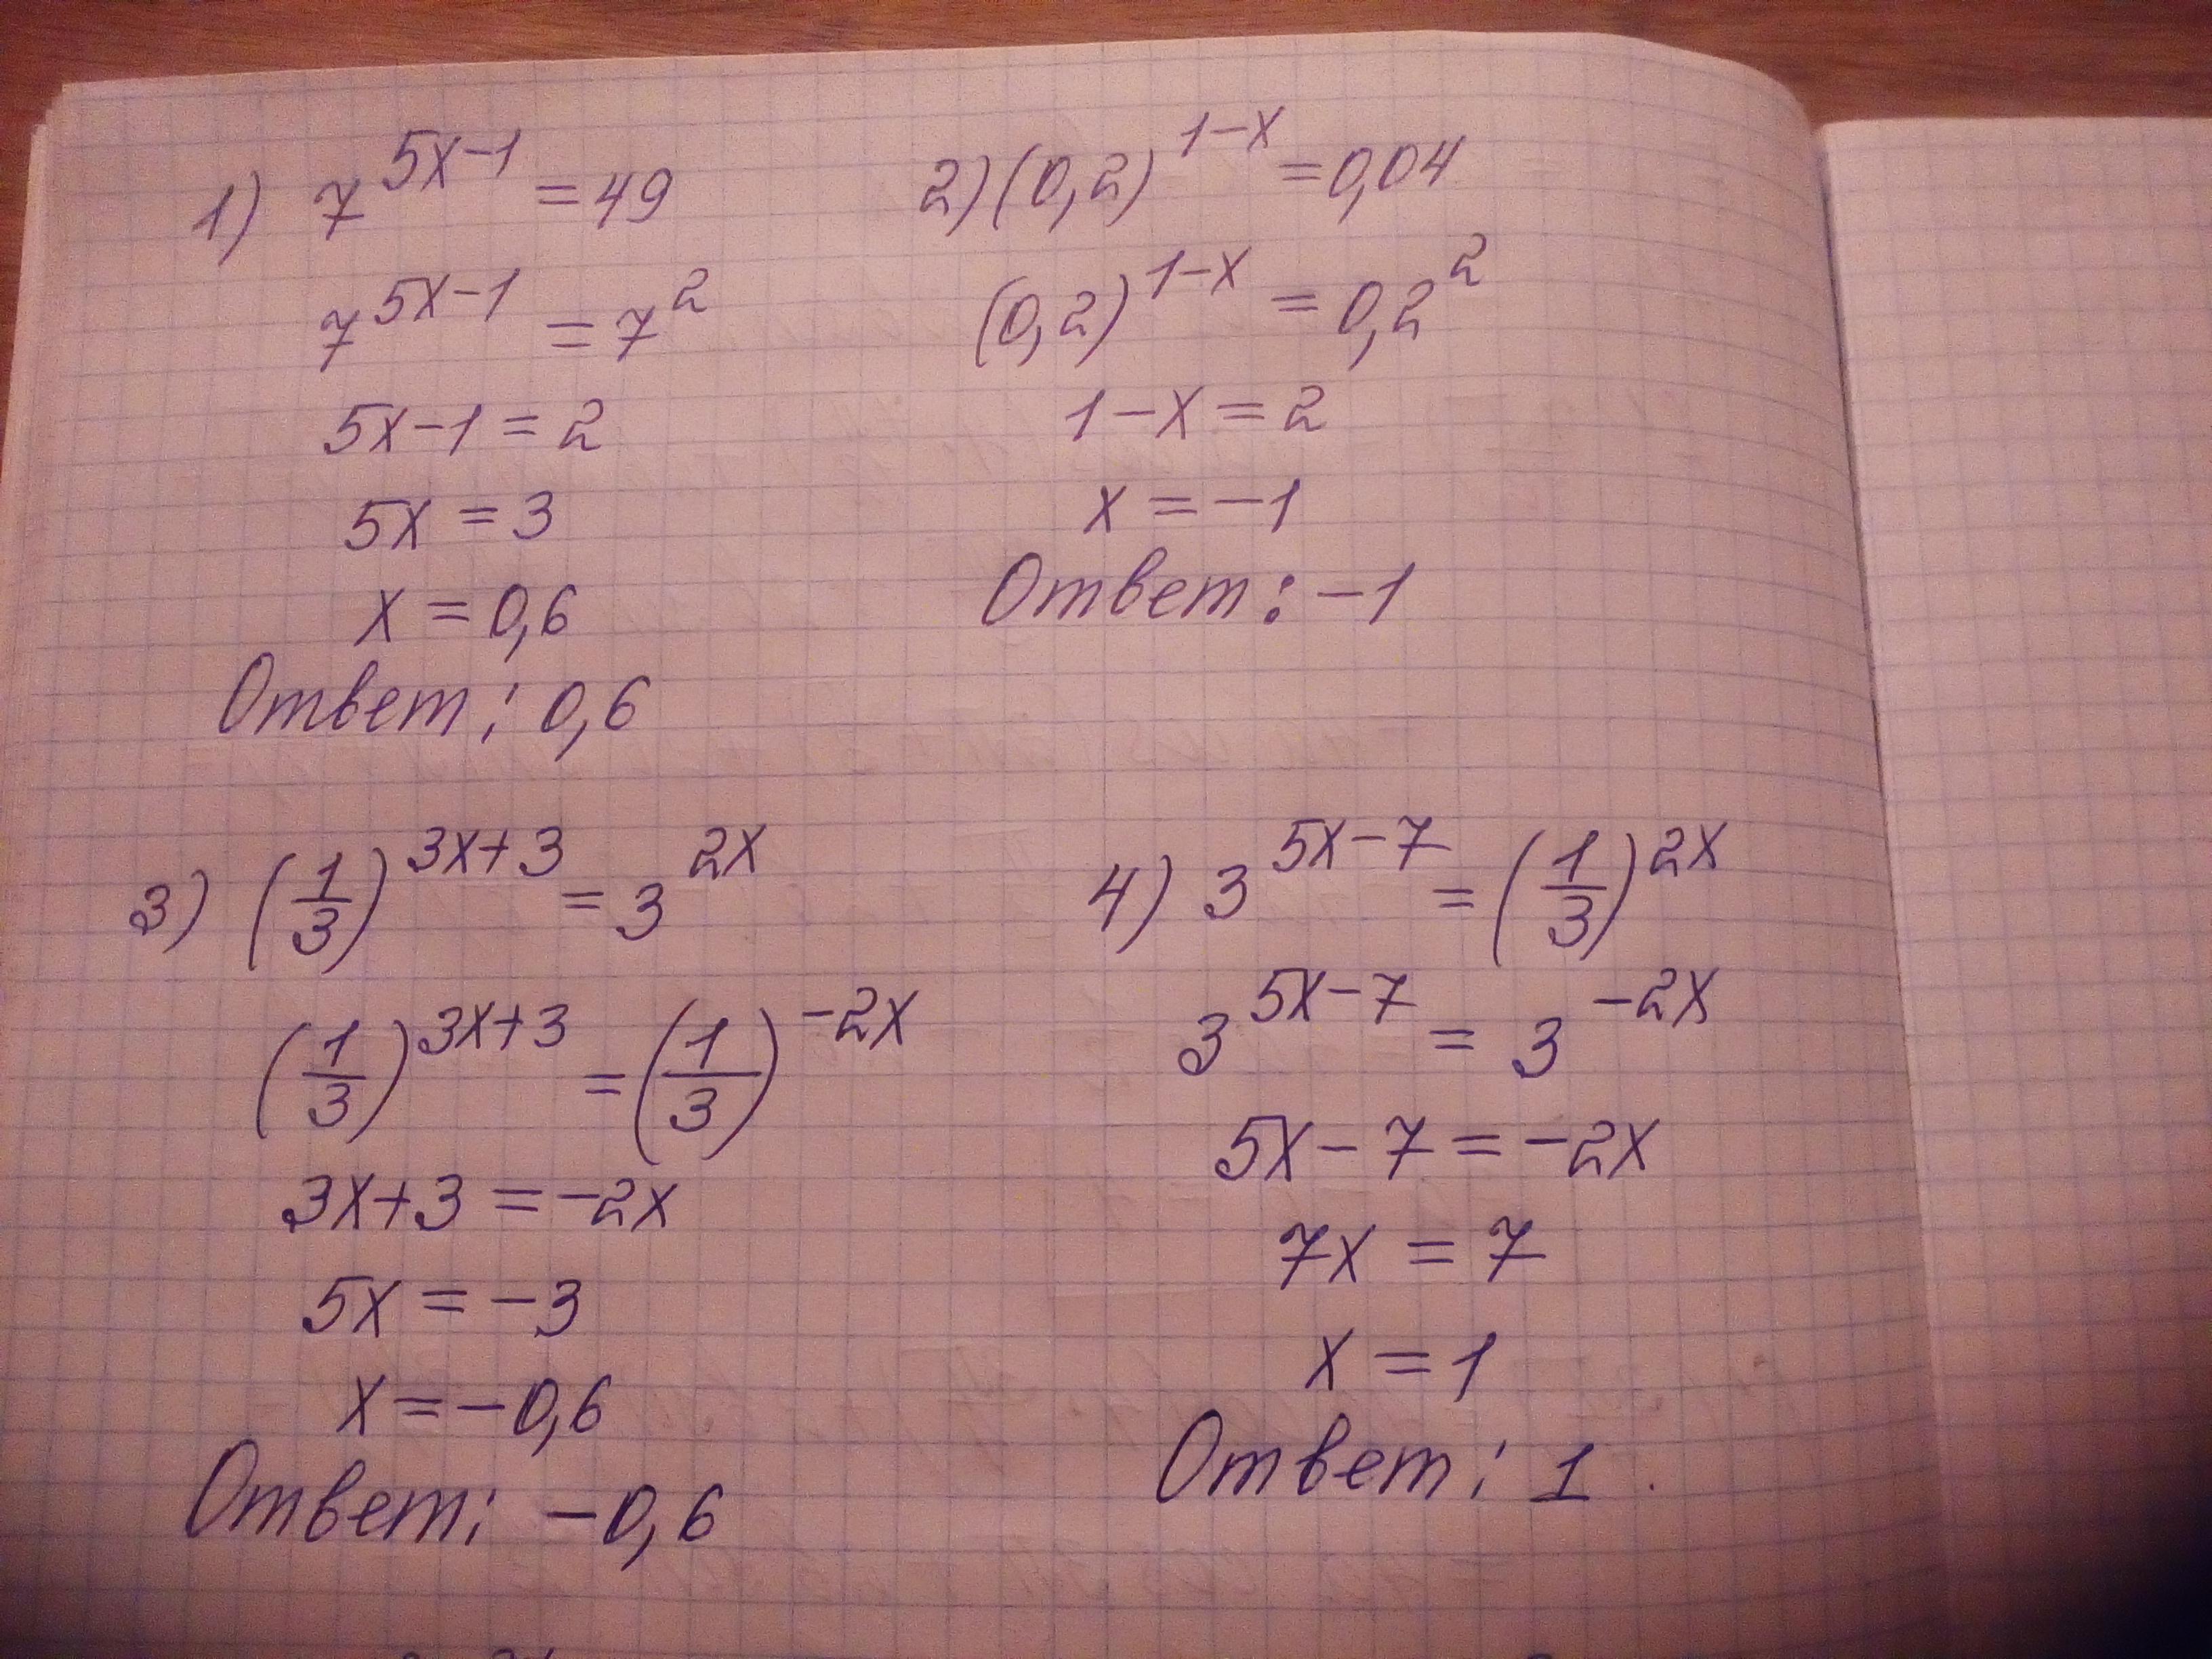 1) 7^{5x-1} = 49
7^{5x-1} = 7^2
5x-1 = 2
5x = 3
x = 0,6
Ответ: 0,6
2) (0,2)^{1-x} = 0,04
(0,2)^{1-x} = 0,2^2
1-x = 2
x = -1
Ответ: -1
3) (1/3)^{3x+3} = 3^{2x}
(1/3)^{3x+3} = (1/3)^{-2x}
3x+3 = -2x
5x = -3
x = -0,6
Ответ: -0,6
4) 3^{5x-7} = (1/3)^{2x}
3^{5x-7} = 3^{-2x}
5x-7 = -2x
7x = 7
x = 1
Ответ: 1